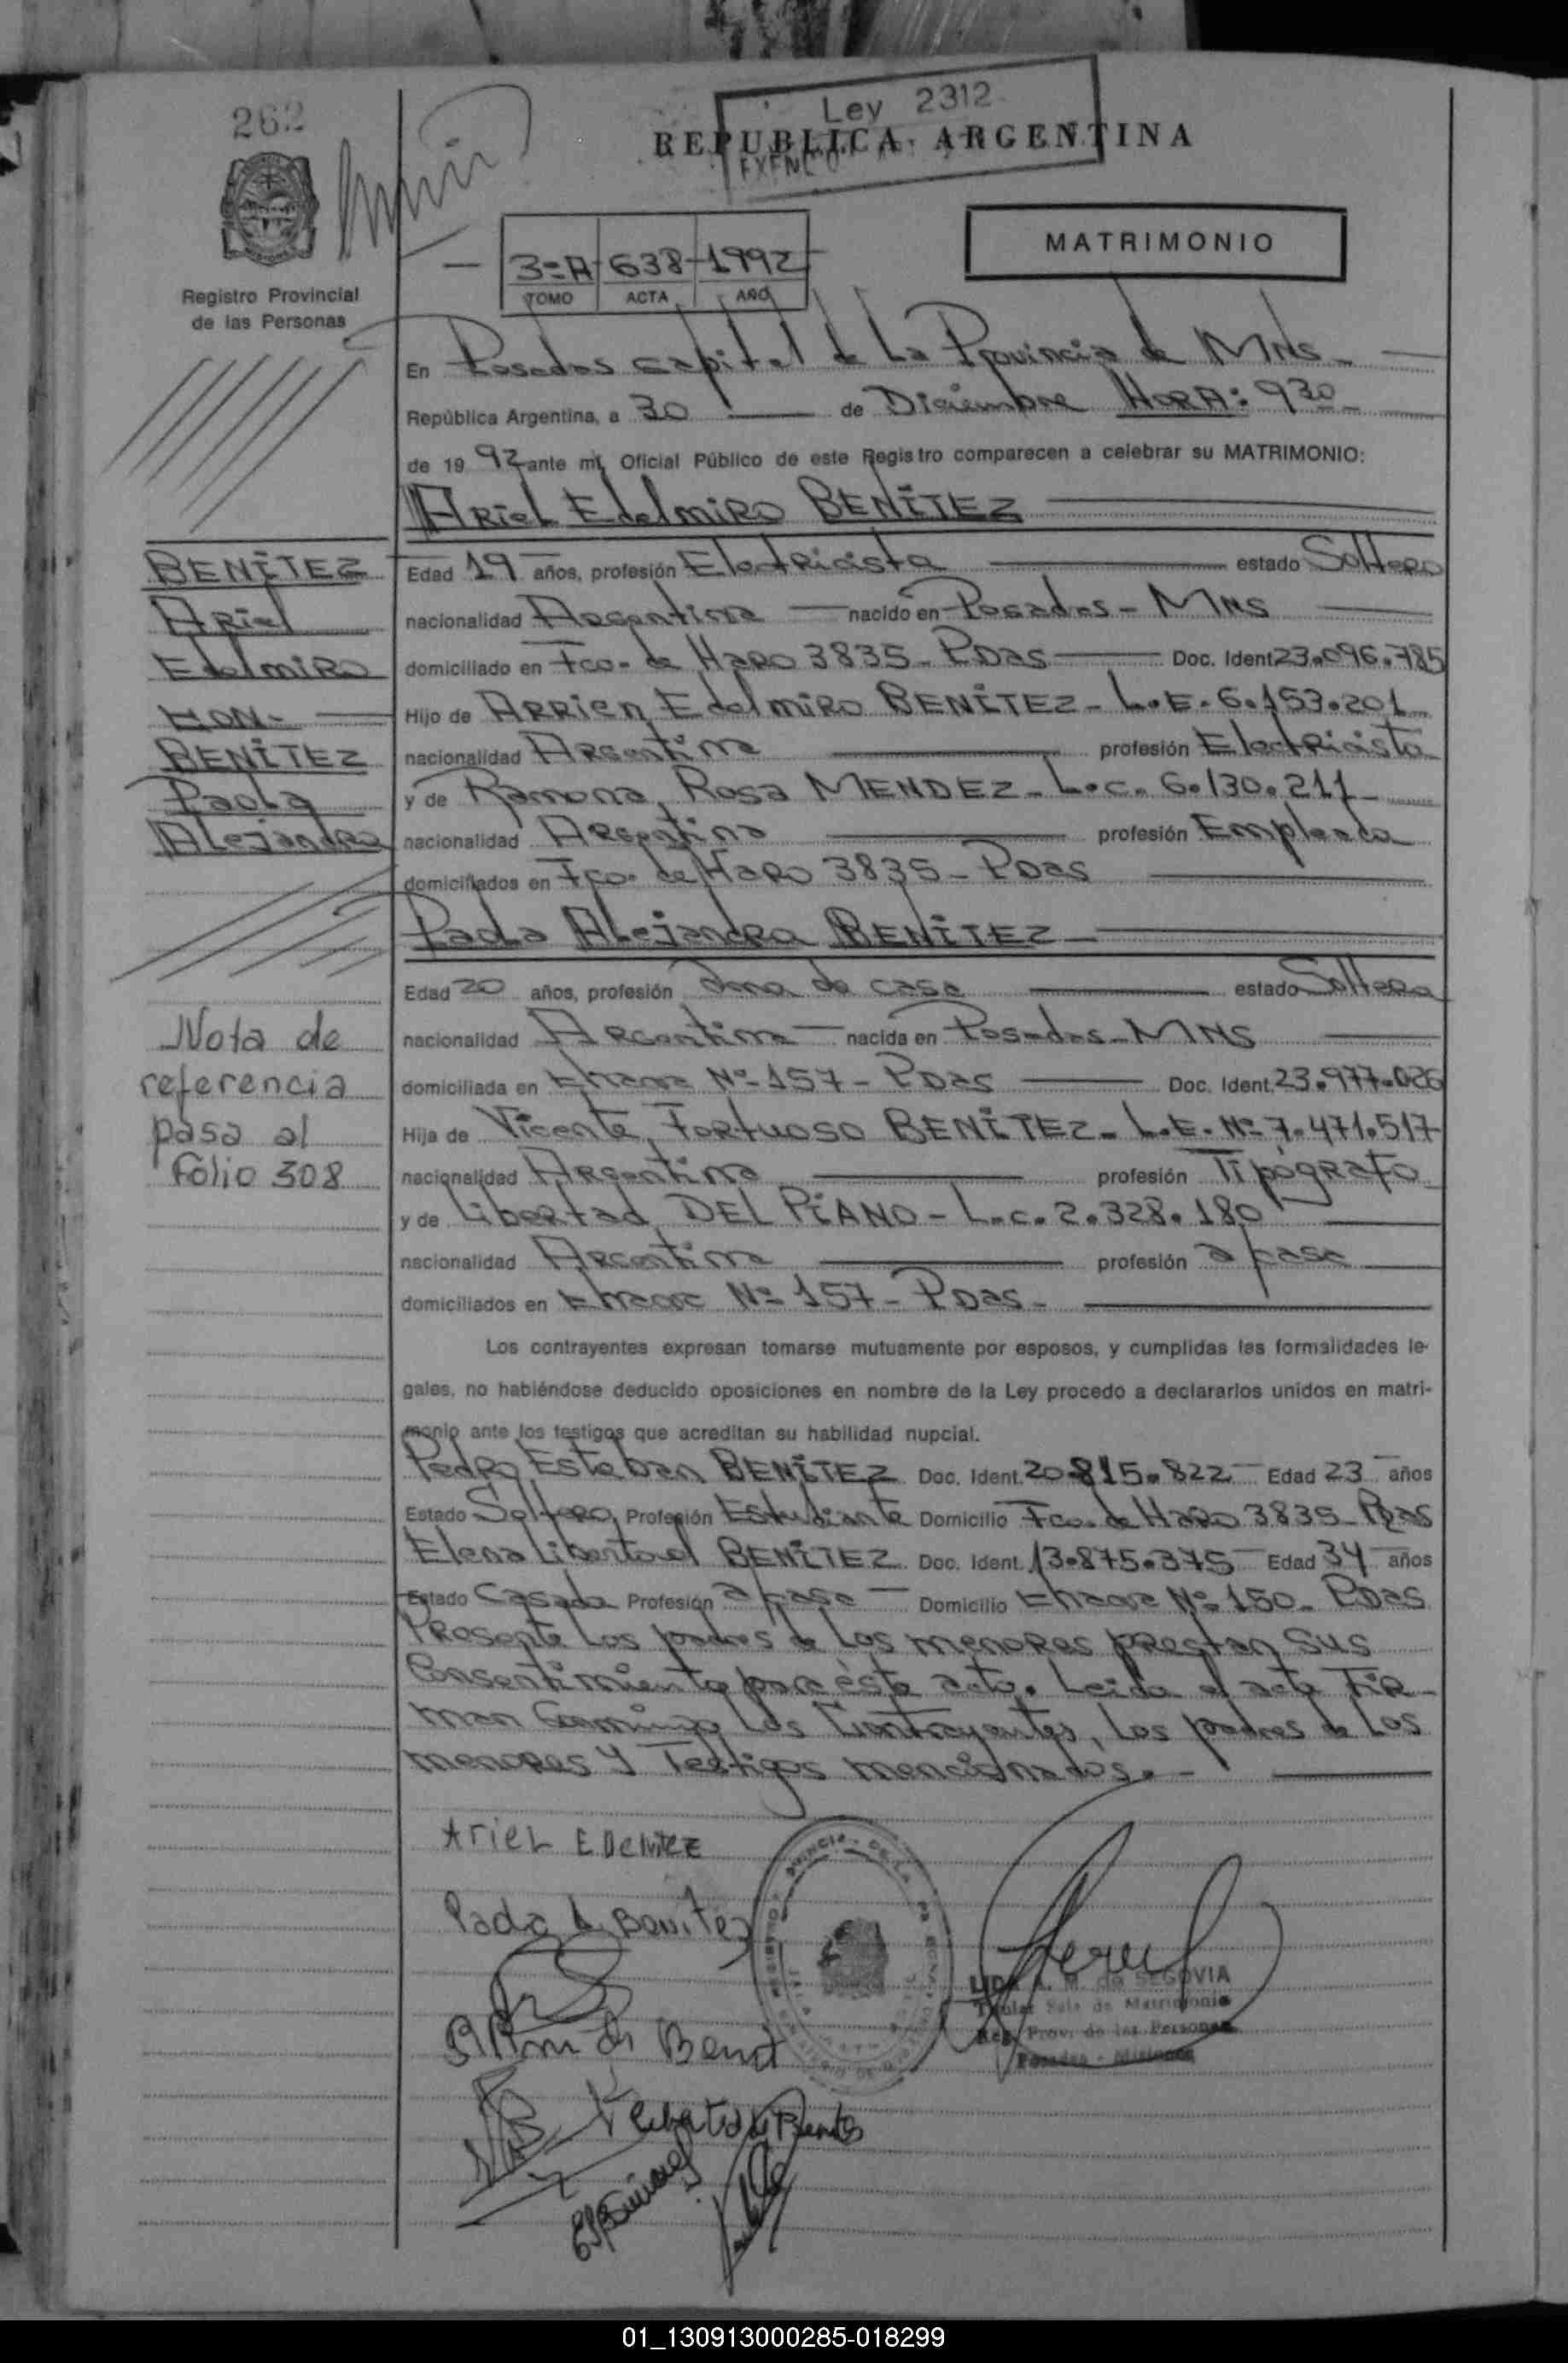 262
Ley 2312
REPUBLICA ARGENTINA
MATRIMONIO
3=A 638 1992
TOMO ACTA AÑO
Registro Provincial
de las Personas
En Posadas capital de La Provincia de MNS
República Argentina, a 30 de Diciembre HORA: 930
de 1992 ante mí, Oficial Público de este Registro comparecen a celebrar su MATRIMONIO:
Ariel Edelmiro BENÍTEZ
BENÍTEZ
Ariel
Edelmiro
CON-
BENÍTEZ
Paola
Alejandra
Edad 19 años, profesión Electricista estado Soltero
nacionalidad Argentina nacido en Posadas - MNS
domiciliado en Fco. de Haro 3835 - PDas Doc. Ident. 23.096.785
Hijo de Arrien, Edelmiro BENÍTEZ - L.E. 6.153.201
nacionalidad Argentina profesión Electricista
y de Ramona, Rosa MENDEZ - L.C. 6.130.211
nacionalidad Argentina profesión Empleada
domiciliados en Fco. de Haro 3835 - PDas
Paola Alejandra BENÍTEZ
Edad 20 años, profesión Ama de casa estado Soltera
nacionalidad Argentina nacida en Posadas - MNS
domiciliada en Nº 157 - PDas Doc. Ident. 23.977.026
Hija de Vicente, Fortuoso BENÍTEZ - L.E. Nº 7.471.517
nacionalidad Argentina profesión Tipógrafo
y de Libertad DEL PIANO - L.C. 2.328.180
nacionalidad Argentina profesión a casa
domiciliados en Nº 157 - PDas -
Nota de
referencia
pasa al
folio 308
Los contrayentes expresan tomarse mutuamente por esposos, y cumplidas las formalidades le-
gales, no habiéndose deducido oposiciones en nombre de la Ley procedo a declararlos unidos en matri-
monio ante los testigos que acreditan su habilidad nupcial.
Pedro Esteban BENÍTEZ Doc. Ident. 20.815.822 Edad 23 años
Estado Soltero Profesión Estudiante Domicilio Fco. de Haro 3835 - PDas
Elena Libertad BENÍTEZ Doc. Ident. 13.875.375 Edad 34 años
Estado Casada Profesión a casa Domicilio Nº 150 - PDas
Presente Los padres de Los menores prestan sus
Consentimiento para éste acto. Leida el acta FIR-
man Conmigo Los Contrayentes, Los padres de Los
menores y Testigos mencionados. -
Ariel E Benitez
Paola A Benitez
LIDA A. M. de SEGOVIA
Titular Sala de Matrimonio
Reg. Prov. de las Personas
Posadas - Misiones
01_130913000285-018299